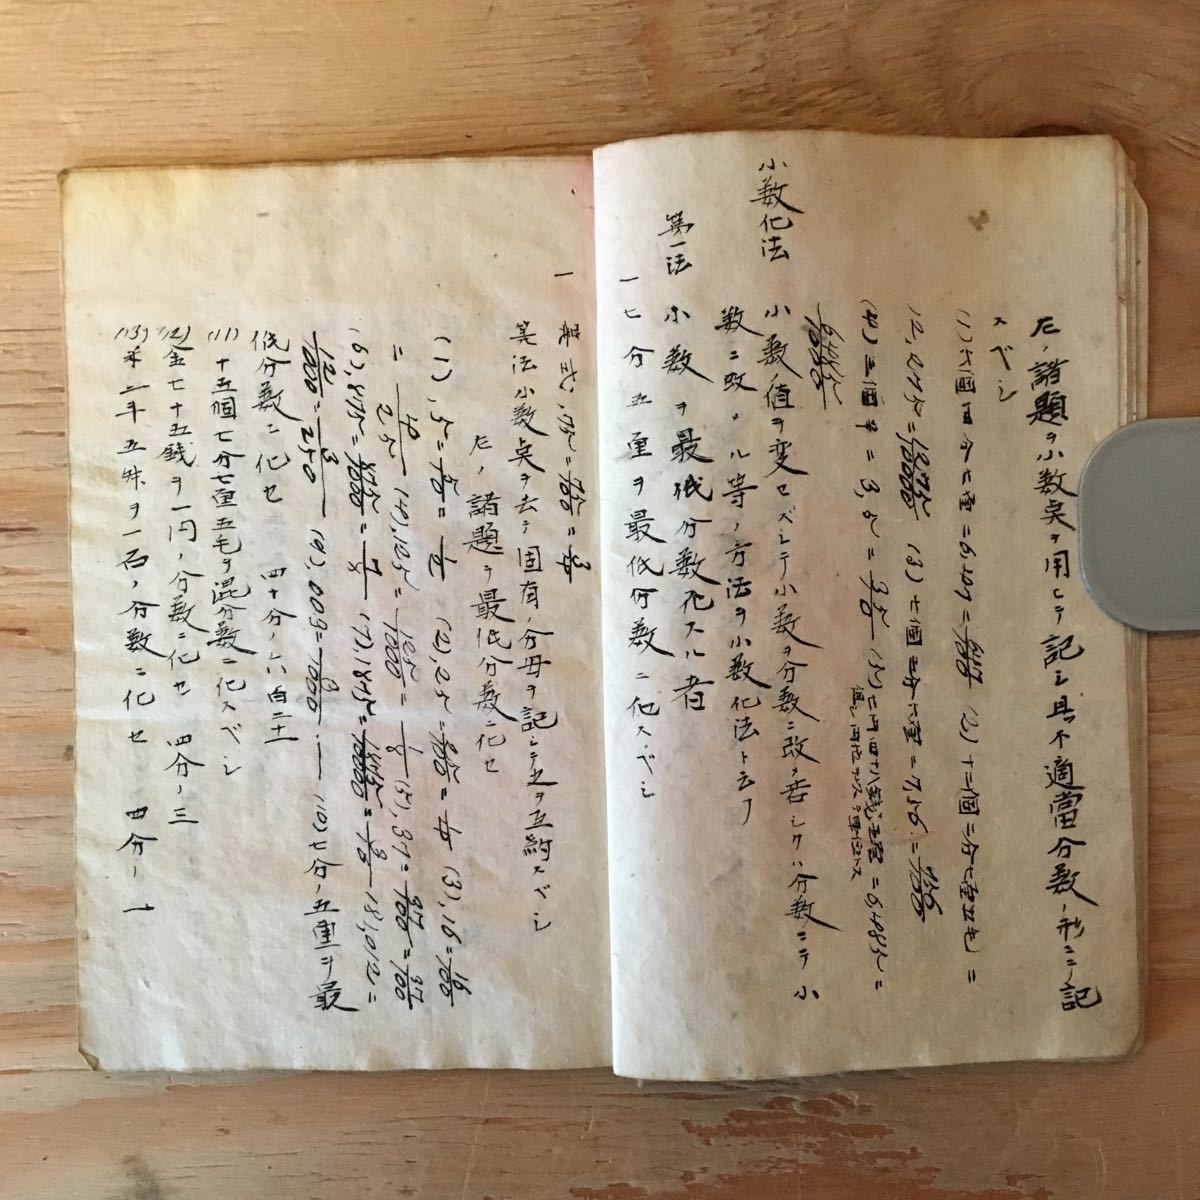 左ノ諸題ヲ小数点ヲ用ヒテ記シ且不適當分数ノ形ニ記
スベシ
(1) 六個四分七厘=6,47=647/100 (2) 十二個二分七厘五毛=
12,275=12275/1000 (3) 七個五分六厘=7,56=756/100
(4) 三個半=3,5=35/10 (5) 七円四十八銭五厘=6,485=
6485/1000
小数化法 小数ノ値ヲ変セズシテ小数ヲ分数ニ改メ若シクハ分数ニテ小
数ニ改ムル等ノ方法ヲ小数化法ト云フ
第一法 小数ヲ最低分数化スル者
一 七分五厘ヲ最低分数ニ化スベシ
一 解式,75=75/100=3/4
算法小数点ヲ去テ固有ノ分母ヲ記シテ之ヲ互約スベシ
左ノ諸題ヲ最低分数ニ化セ
(1),5=5/10=1/2 (2),25=25/100=1/4 (3),16=16/100
=4/25 (4),125=125/1000=1/8 (5),37=37/100=37/100
(6),875=875/1000=7/8 (7),1875=1875/10000=3/16 (8),012=
12/1000=3/250 (9),003=3/1000 (10)七分五厘ヲ最
低分数ニ化セ 四十分ノ
(11) 十五個七分七厘五毛ヲ混分数ニ化スベシ
(12)金七十五銭ヲ一円ノ分数ニ化セ 四分ノ三
(13)米二斗五升ヲ一石ノ分数ニ化セ 四分ノ一